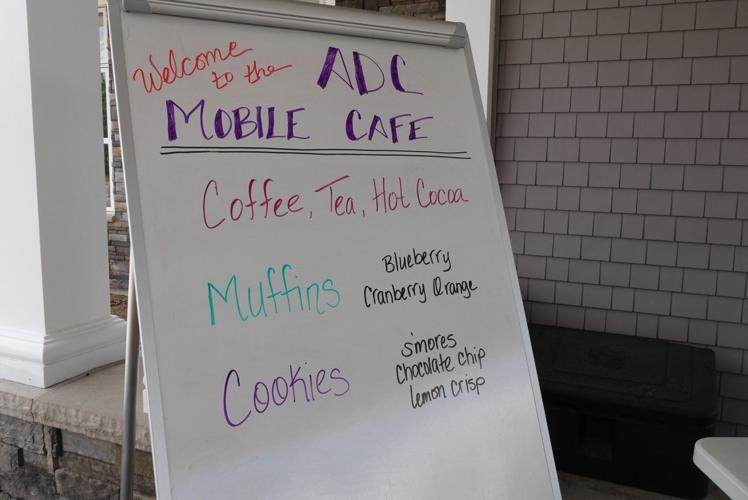 Welcome to the ADC
MOBILE CAFE
Coffee, Tea, Hot Cocoa
Muffins
Blueberry
Cranberry Orange
Cookies
s'mores
Chocolate chip
lemon crisp